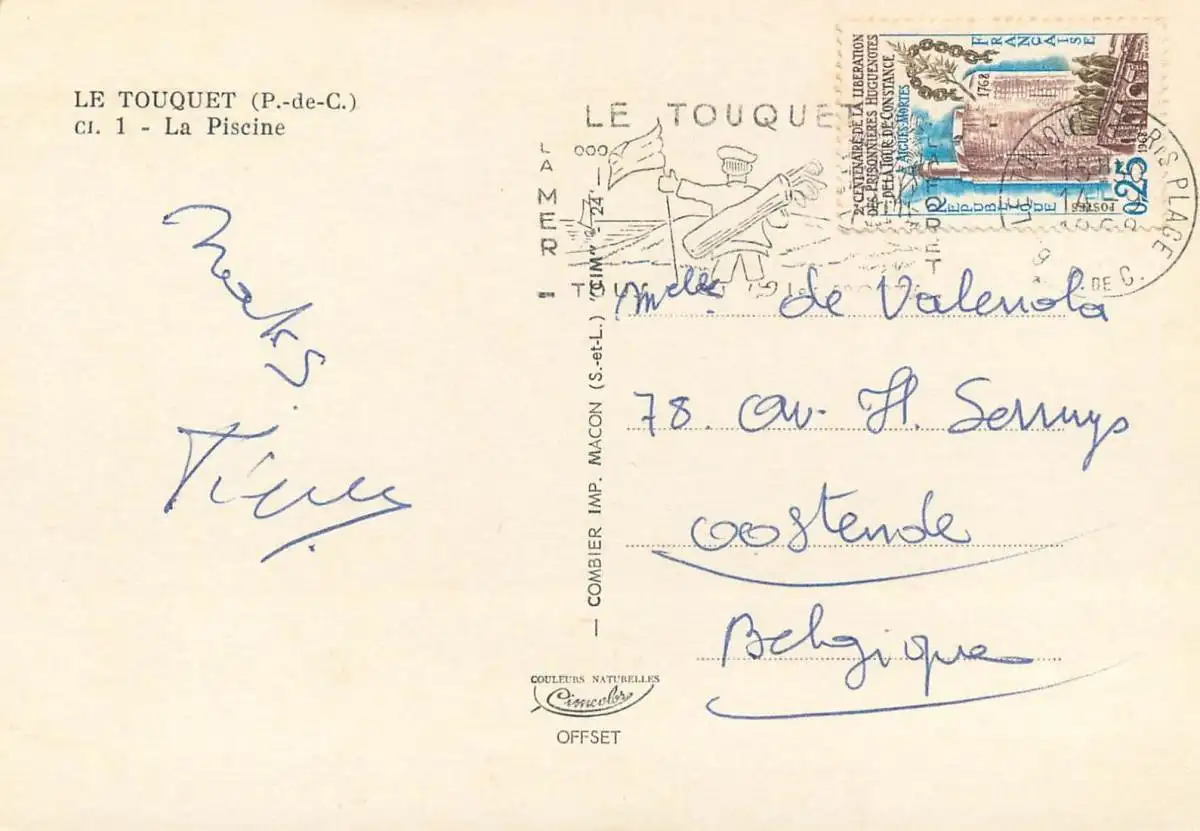 LE TOUQUET (P.-de-C.)
CI. 1 - La Piscine
LE TOUQUET
LA MER
2e CENTENAIRE DE LA LIBERATION
DES PRISONNIERES HUGUENOTES
DE LA TOUR DE CONSTANCE
A AIGUES-MORTES
1768
FRANÇAISE
REPUBLIQUE
POSTES
0,25
1968
PLAGE
DE C.
Melles de Valenola
78. av. H. Serruys
Oostende
Belgique
— COMBIER IMP. MACON (S.-et-L.) "CIM" - 24 —
COULEURS NATURELLES
Cimcolor
OFFSET